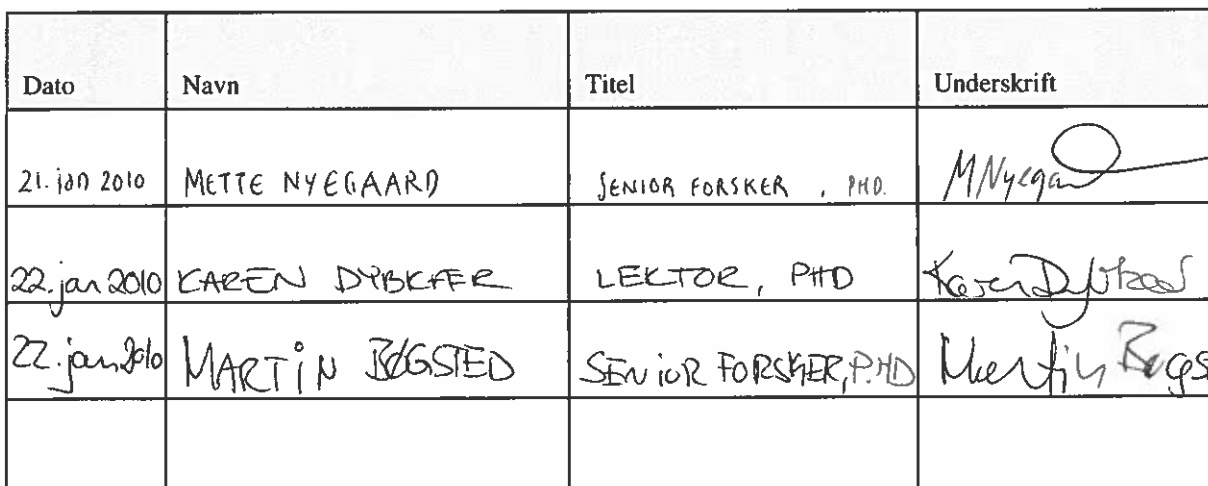 Dato Navn Titel Underskrift
21. jan 2010 METTE NYEGAARD SENIOR FORSKER, PHD. MNyegaa
22. jan 2010 KAREN DYBKÆR LEKTOR, PHD Karen Dybkær
22. jan 2010 MARTIN BØGSTED SENIOR FORSKER, P.HD Martin Bøgs